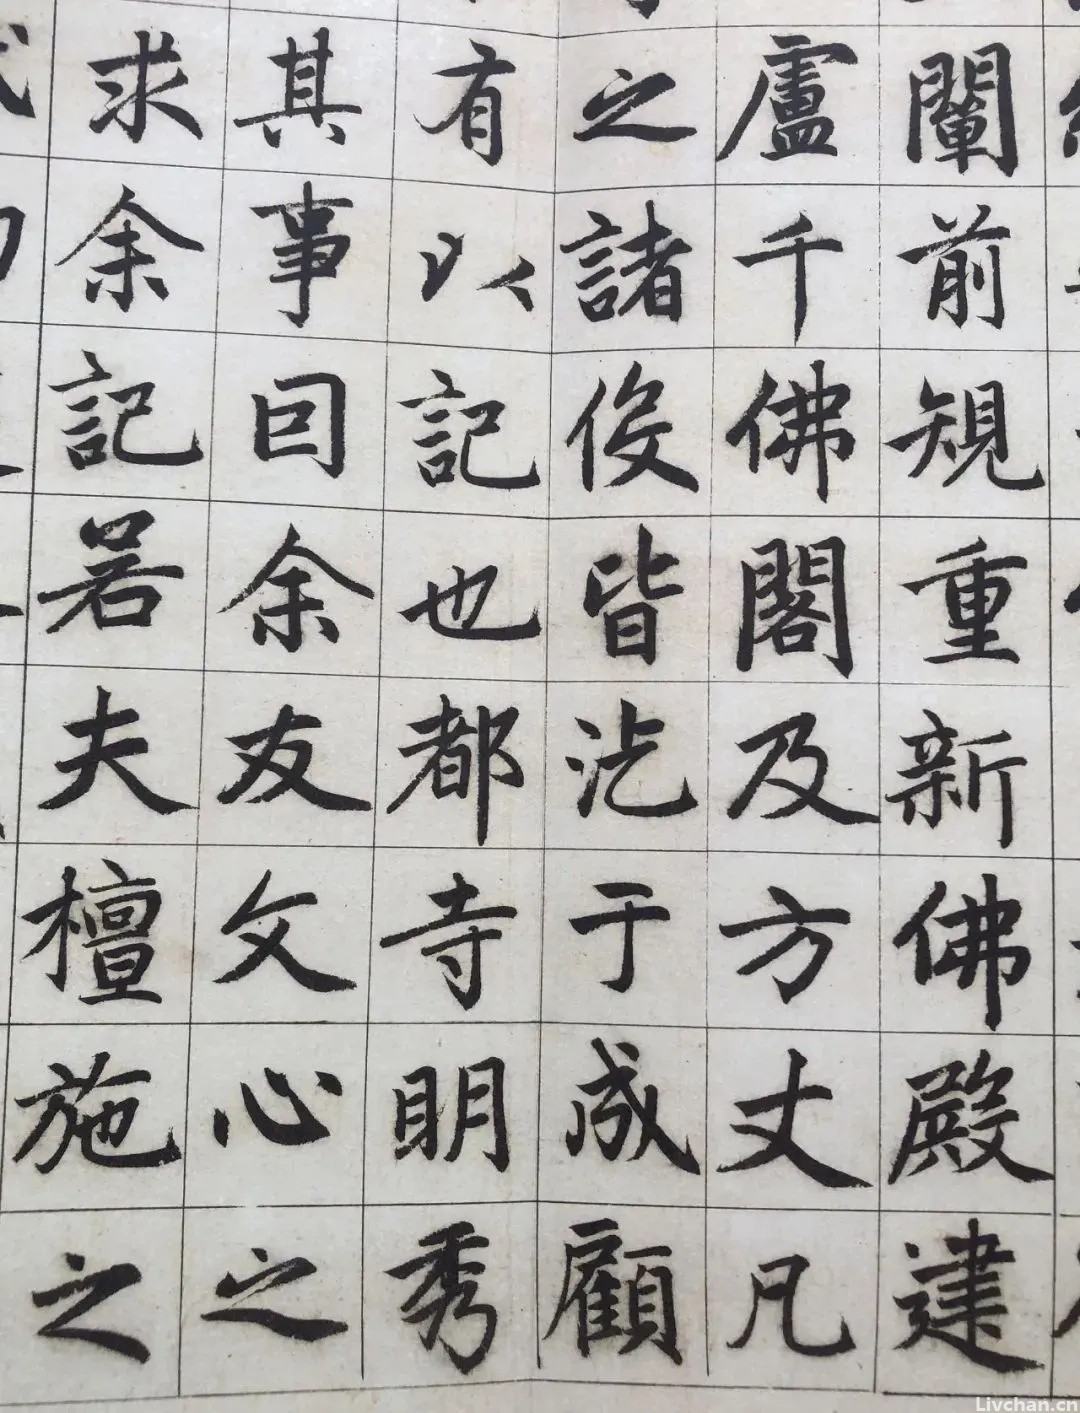 闡前規重新佛殿建
盧千佛閣及方丈凡
之諸伇皆汔于成顧
有以記也都寺明秀
其事囙余友文心之
求余記若夫檀施之
Livchan.cn